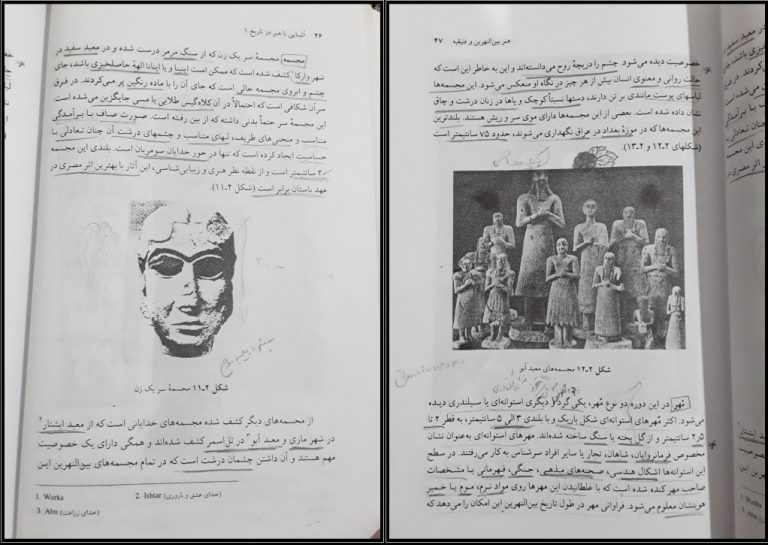 ۴۶ آشنایی با هنر در تاریخ ۱
مجسمه مجسمهٔ سر یک زن که از سنگ مرمر درست شده و در معبد سفید در
شهر وارکا۱ کشف شده است که ممکن است اینینا و یا اینانا الههٔ حاصلخیزی باشد، جای
چشم و ابروی مجسمه خالی است که جای آن را با ماده رنگین پر می‌کردند. در فرق
سر آن شکافی است که احتمالاً در آن کلاه‌گیس طلایی یا مسی جایگزین می‌شده است.
این مجسمهٔ سر حتماً بدنی داشته که از بین رفته است. صورت صاف با برآمدگی
متناسب و منحنی‌های ظریف، لبهای متناسب و چشمهای درشت آن چنان تعادلی با
حساسیت ایجاد کرده است که تنها در خور خدایان سومریان است. بلندی این مجسمه
۲۰ سانتیمتر است و از نقطه نظر هنری و زیبایی‌شناسی، این آثار با بهترین اثر مصری در
عهد باستان برابر است (شکل ۲ـ۱۱).
شکل ۲ـ۱۱ مجسمهٔ سر یک زن
از مجسمه‌های دیگر کشف شده مجسمه‌های خدایانی است که از معبد ایشتار۲
در شهر ماری و معبد آبو۳ در تل‌اسمر کشف شده‌اند و همگی دارای یک خصوصیت
مهم هستند و آن داشتن چشمان درشت است که در تمام مجسمه‌های بین‌النهرین این
1. Warka 2. Ishtar (خدای عشق و باروری)
3. Abu (خدای زراعت)
هنر بین‌النهرین و فنیقیه ۴۷
خصوصیت دیده می‌شود. چشم را دریچهٔ روح می‌دانسته‌اند و این به خاطر این است که
حالت روانی و معنوی انسان بیش از هر چیز در نگاه او منعکس می‌شود. این مجسمه‌ها
لباسهای پوست مانندی بر تن دارند، دستها نسبتاً کوچک و پاها در زنان درشت و چاق
نشان داده شده است. بعضی از این مجسمه‌ها دارای موی سر و ریش هستند. بلندترین
این مجسمه‌ها که در موزهٔ بغداد در عراق نگهداری می‌شوند، حدود ۷۵ سانتیمتر است
(شکلهای ۲ـ۱۲ و ۲ـ۱۳).
شکل ۲ـ۱۲ مجسمه‌های معبد آبو
مُهر در این دوره دو نوع مُهر، یکی گرد و دیگری استوانه‌ای یا سیلندری دیده
می‌شود. اکثر مُهرهای استوانه‌ای شکل باریک و با بلندی ۳ الی ۵ سانتیمتر، به قطر ۲ تا
۲٫۵ سانتیمتر و از گل پخته یا سنگ ساخته شده‌اند. مهرهای استوانه‌ای به‌عنوان نشان
مخصوص فرمانروایان، شاهان، تجار یا سایر افراد سرشناس به کار می‌رفتند. در سطح
این استوانه‌ها اشکال هندسی، صحنه‌های مذهبی، جنگی، قهرمانی با مشخصات
صاحب مهر کنده شده است که با غلطانیدن این مهرها روی مواد نرم، موم یا خمیر
هویتشان معلوم می‌شود. فراوانی مهر در طول تاریخ بین‌النهرین این امکان را می‌دهد که